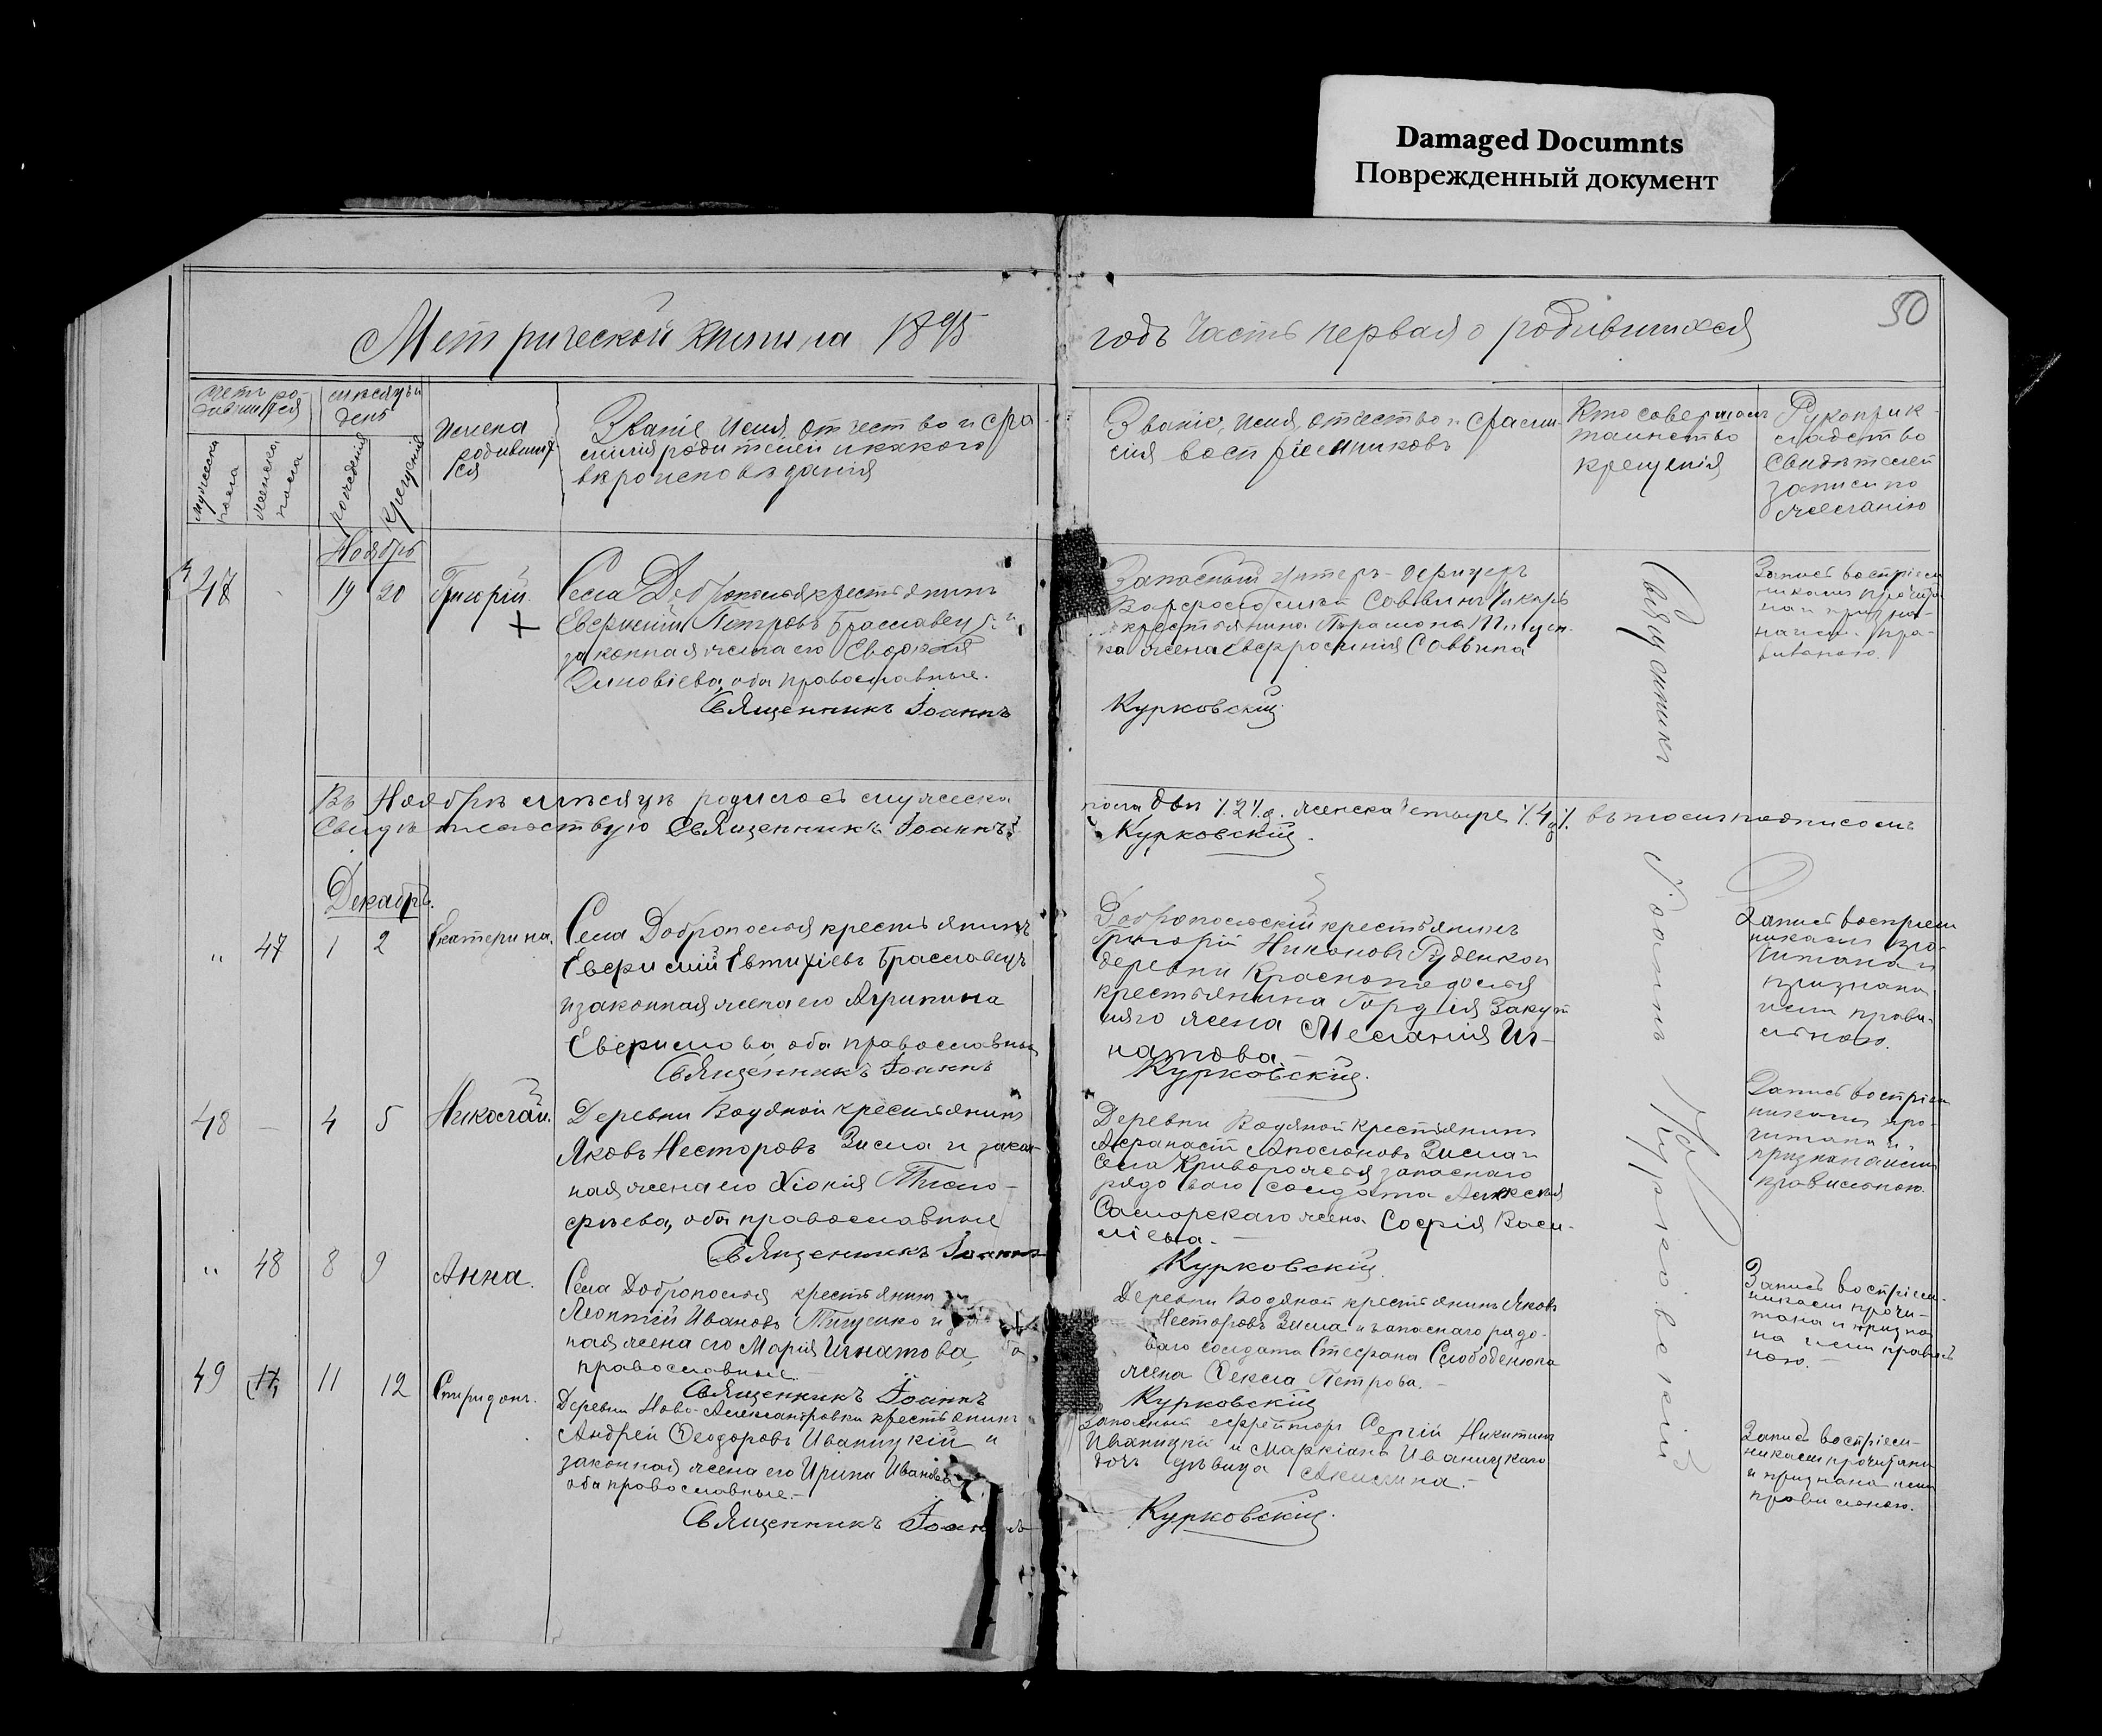 Damaged Documnts
Поврежденный документ
50
Метрической книги на 1895
годъ часть первая о родившихся
родившихся
день
мужеска пола
женска пола
рожденія
крещенія
Имена
родивших
ся
Званіе Имя, отчество и фа
милія родителей и какого
вѣроисповѣданія
Званіе, имя, отчество и фами
лія воспріемниковъ
Кто совершалъ
таинство
крещенія
Рукоприк
ладство
свидѣтелей
записи по
желанію
Ноябрь
47
19
20
Григорій.
Села Доброполья крестьянинъ
Евфимій Петровъ Браславецъ и
законная жена его Евдокія
Зиновіева, оба православные.
Священникъ Іоаннъ
Запасный унтеръ-офицеръ
Саввинъ
крестьянина
жена Евфросинія Саввина
Курковскій
Священникъ Іоаннъ Курковскій
Запись воспріем
никами прочита
на и призна
Въ Ноябрѣ мѣсяцѣ родилось мужеска
пола два ٪2٪д. женска четыре ٪4٪ въ томъ подписомъ
Свидѣтельствую Священникъ Іоаннъ
Курковскій.
Декабрь.
"
47
1
2
Екатерина.
Села Доброполья крестьянинъ
Евфимій Евтихіевъ Браславецъ
и законная жена его Агрипина
Ефимова оба православные
Священникъ Іоаннъ
Добропольскій крестьянинъ
Григорій Никоновъ Руденко и
деревни Красноподолья
крестьянина Гордія Закут
няго жена Меланія Иг-
натова.-
Курковскій.
Запись воспріем
никами про
читана и
признана
ими прави
льною.
48
-
4
5
Николай.
Деревни Водяной крестьянинъ
Яковъ Несторовъ Зисла и закон
ная жена его Хіонія Тимо-
фѣева, оба православные
Священникъ Іоаннъ
Деревни Водяной крестьянинъ
Афанасій Зисла и
Села Криворожья запаснаго
рядоваго солдата Алексѣя
Саморскаго жена Софія Васи-
ліева.-
Курковскій.
Запись воспріем
никами про-
читана и
признана ими
правильною.
"
48
8
9
Анна.
Села Доброполья крестьянинъ
Леонтій Ивановъ Тищенко и
ная жена его Марія Игнатова,
православные.
Священникъ Іоаннъ
Деревни Водяной крестьянинъ Яковъ
Несторовъ Зисла и запаснаго рядо-
ваго солдата Стефана Слободенюка
жена Ѳекла Петрова.-
Курковскій
Запись воспріем-
никами прочи-
тана и призна
на ими правиль
ною.-
49
11
12
Спиридонъ.
Деревни Ново-Александровки крестьянинъ
Андрей Ѳеодоровъ Иваницкій и
законная жена его Ирина Иванова
оба православные.-
Священникъ Іоаннъ
Запасный ефрейторъ Сергій Никитинъ
Иваницкій и Маркіана Иваницкаго
дочь дѣвица Акилина.-
Курковскій.
Запись воспріем-
никами прочитана
и признана ими
правильною.